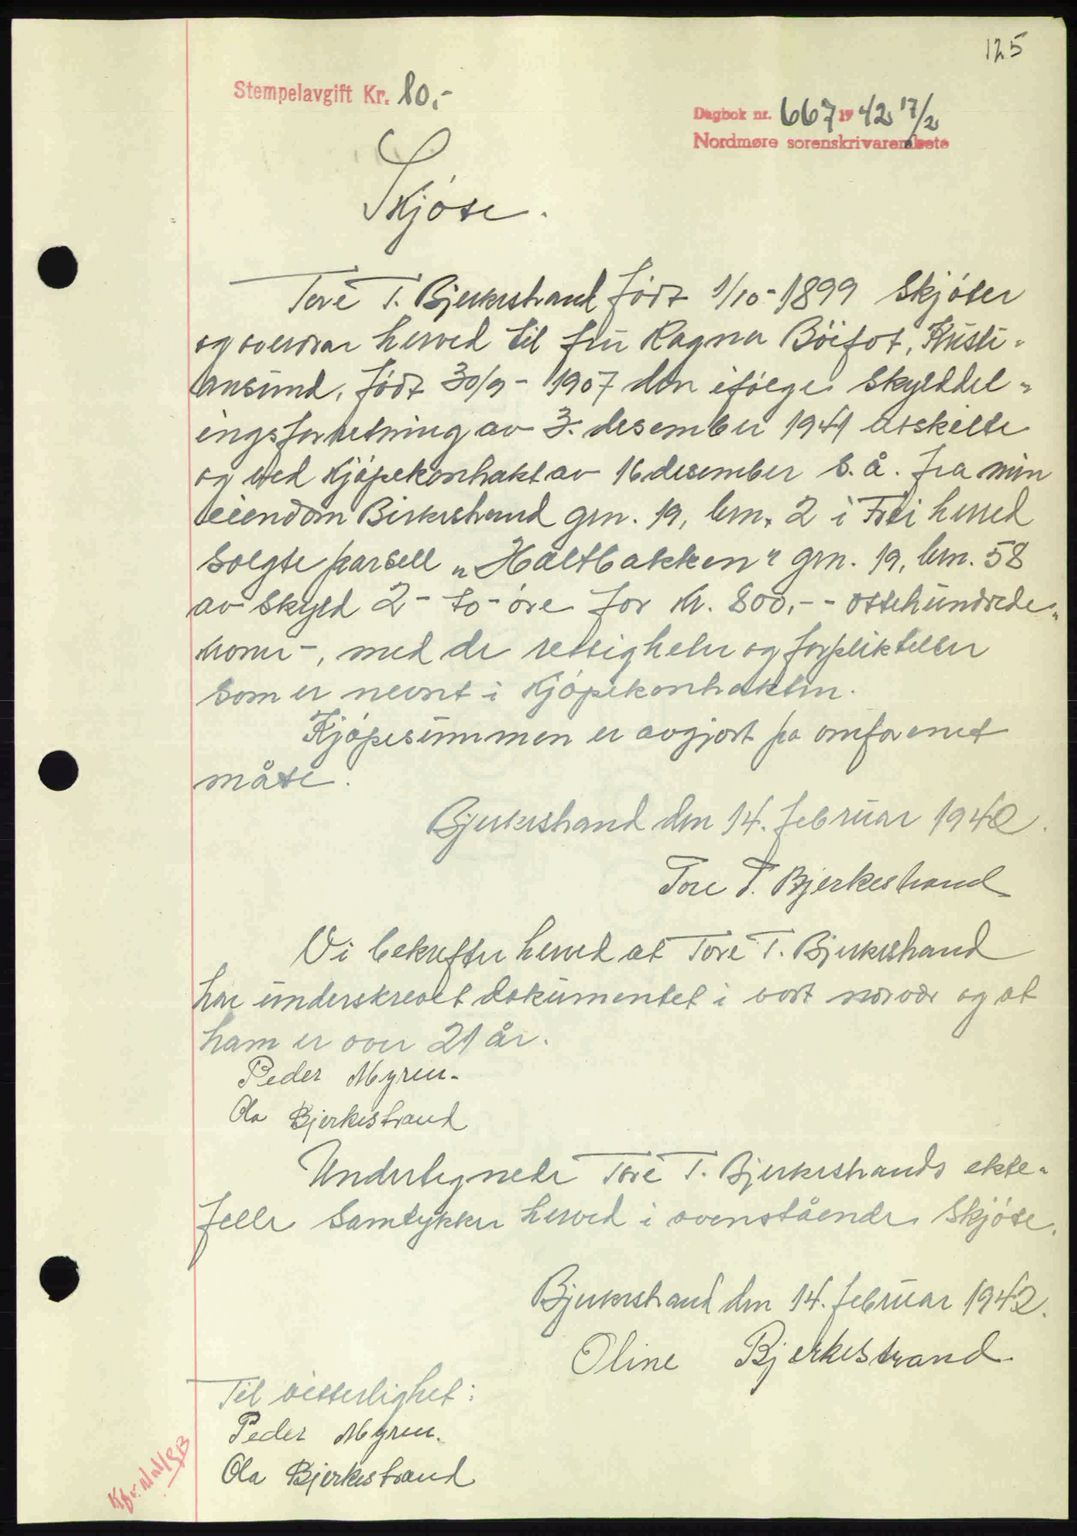 125
Stempelavgift Kr. 10.-
Dagbok nr. 667 19 42 17/2
Nordmøre sorenskrivarembete
Skjøte.
Tore T. Bjerkestrand født 1/10-1899 skjøter
og overdrar herved til fru Ragna Böifot, Kristi-
ansund, født 30/9-1907 den ifølge skylddel-
ingsforretning av 3. desember 1941 utskilte
og ved kjøpekontrakt av 16 desember s.å. fra min
eiendom Birkestrand grn. 19, brn. 2 i Frei herred
solgte parsell "Haltbakken" grn. 19, brn. 58
av skyld 2- to- øre for kr. 800,- - ottehundrede-
kroner-, med de rettigheter og forpliktelser
som er nevnt i kjøpekontrakten.
Kjøpesummen er avgjort på omforenet
måte.
Bjerkestrand den 14. februar 1942.
Tore T. Bjerkestrand
Vi bekrefter herved at Tore T. Bjerkestrand
har underskrevet dokumentet i vort nærvær og at
ham er over 21 år.
Peder Myren.
Ola Bjerkestrand
Undertegnede Tore T. Bjerkestrands ekte-
felle samtykker herved i ovenstående skjøte.
Bjerkestrand den 14. februar 1942.
Oline Bjerkestrand
Til vitterlighet:
Peder Myren.
Ola Bjerkestrand